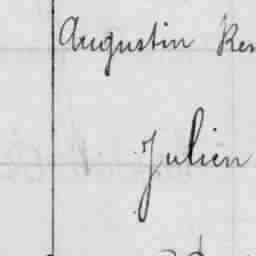 Augustin
Julien